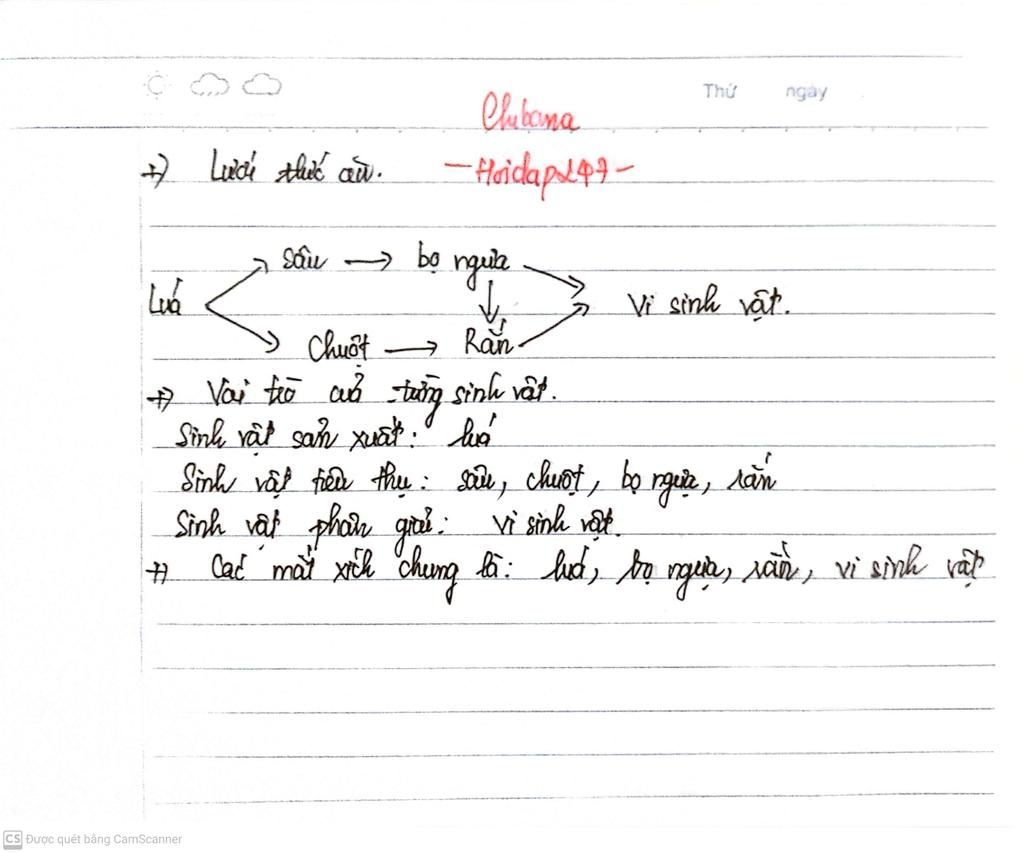 Thứ ngày
Chibana
+) Lưới thức ăn. -Hoidap247-
Sâu → bọ ngựa
Lúa Vi sinh vật.
Chuột → Rắn
+) Vai trò của từng sinh vật.
Sinh vật sản xuất: lúa
Sinh vật tiêu thụ: sâu, chuột, bọ ngựa, rắn
Sinh vật phân giải: vi sinh vật.
+) Các mắt xích chung là: lúa, bọ ngựa, rắn, vi sinh vật
CS Được quét bằng CamScanner